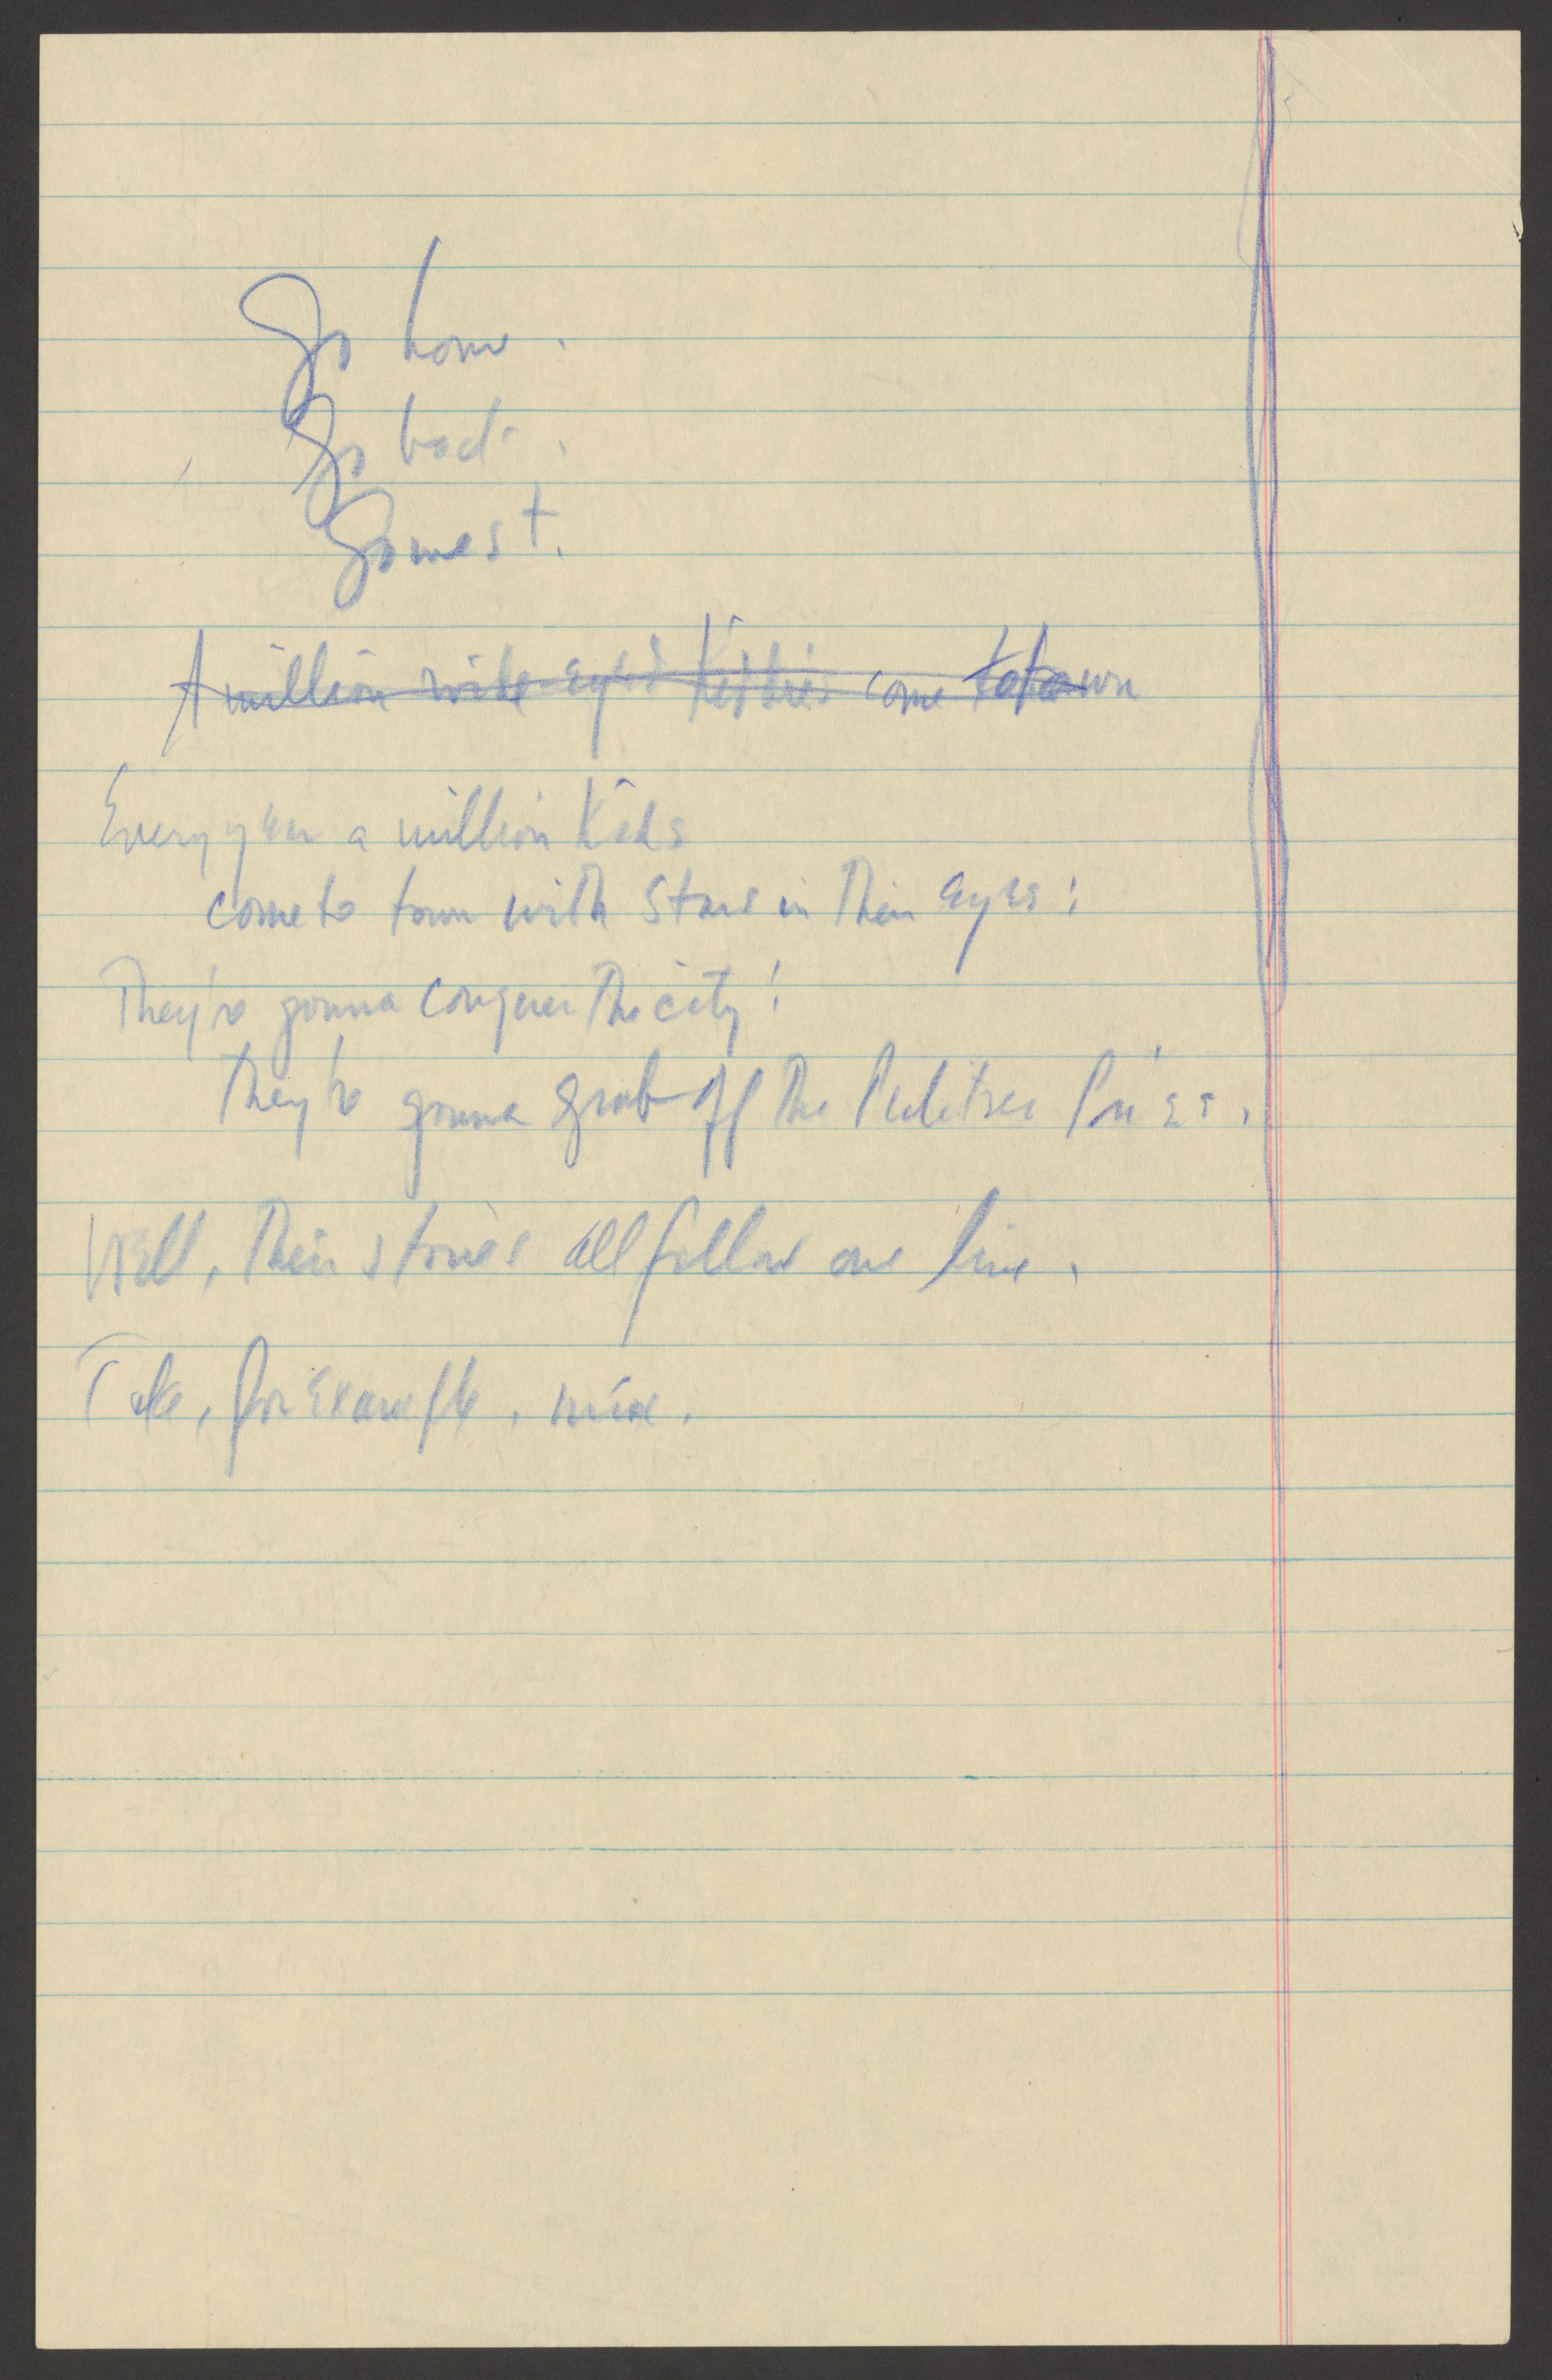 Go home.
Go back.
Go west.
A million wide-eyed kiddies come to town
Every year a million kids
come to town with stars in their eyes;
They're gonna conquer the city;
They're gonna grab off the Pulitzer Prize.
Well, their stories all follow one line.
Take, for example, mine.